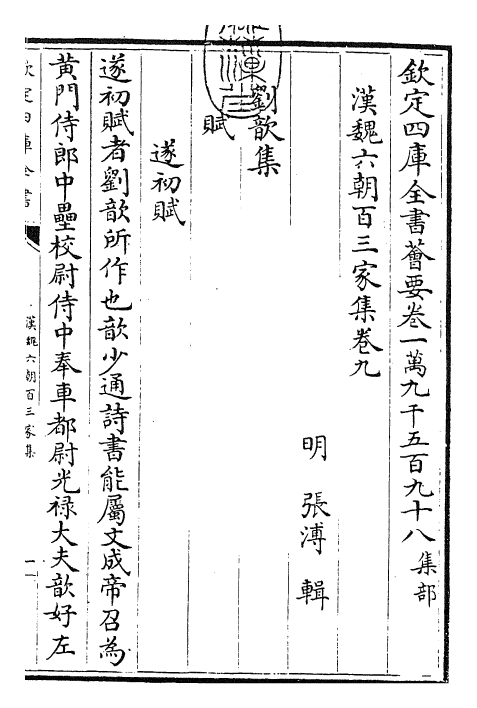 欽定四庫全書薈要卷一萬九千五百九十八集部
漢魏六朝百三家集卷九
明 張溥 輯
劉歆集
賦
遂初賦
遂初賦者劉歆所作也歆少通詩書能屬文成帝召為
黃門侍郎中壘校尉侍中奉車都尉光禄大夫歆好左
欽定四庫全書
漢魏六朝百三家集
一